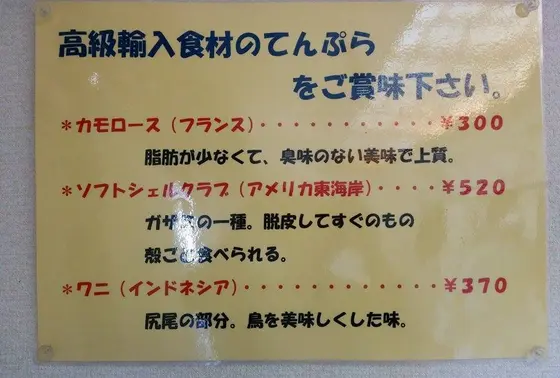 高級輸入食材のてんぷら
をご賞味下さい。
＊カモロース（フランス）・・・・・・・・・・・・￥300
脂肪が少なくて、臭味のない美味で上質。
＊ソフトシェルクラブ（アメリカ東海岸）・・・・￥520
ガザミの一種。脱皮してすぐのもの
殻ごと食べられる。
＊ワニ（インドネシア）・・・・・・・・・・・・・￥370
尻尾の部分。鳥を美味しくした味。